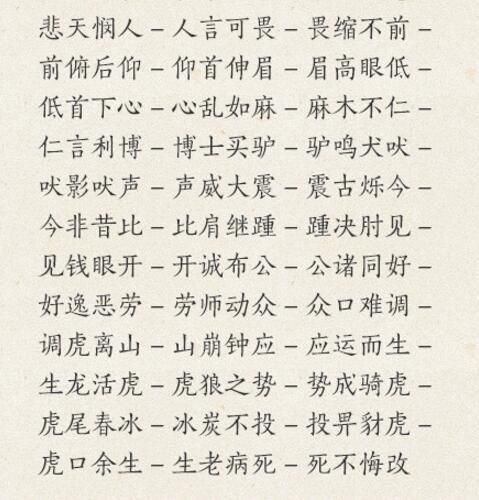 悲天悯人－人言可畏－畏缩不前－
前俯后仰－仰首伸眉－眉高眼低－
低首下心－心乱如麻－麻木不仁－
仁言利博－博士买驴－驴鸣犬吠－
吠影吠声－声威大震－震古烁今－
今非昔比－比肩继踵－踵决肘见－
见钱眼开－开诚布公－公诸同好－
好逸恶劳－劳师动众－众口难调－
调虎离山－山崩钟应－应运而生－
生龙活虎－虎狼之势－势成骑虎－
虎尾春冰－冰炭不投－投畀豺虎－
虎口余生－生老病死－死不悔改